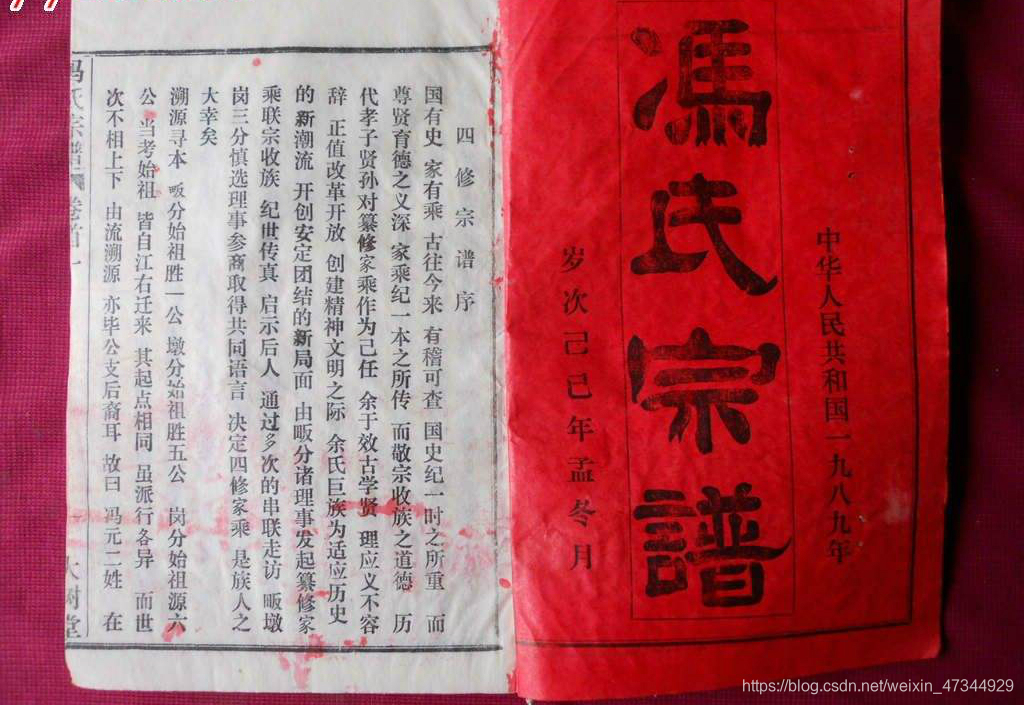 中华人民共和国一九八九年
馮氏宗譜
岁次己巳年孟冬月
四修宗谱序
国有史 家有乘 古往今来 有稽可查 国史纪一时之所重 而
尊贤育德之义深 家乘纪一本之所传 而敬宗收族之道德 历
代孝子贤孙对纂修家乘作为己任 余于效古学贤 理应义不容
辞 正值改革开放 创建精神文明之际 余氏巨族为适应历史
的新潮流 开创安定团结的新局面 由畈分诸理事发起纂修家
乘联宗收族 纪世传真 启示后人 通过多次的串联走访 畈墩
岗三分慎选理事参商取得共同语言 决定四修家乘 是族人之
大幸矣
溯源寻本 畈分始祖胜一公 墩分始祖胜五公 岗分始祖源六
公 当考始祖 皆自江右迁来 其起点相同 虽派行各异 而世
次不相上下 由流溯源 亦毕公支后裔耳 故曰 冯元二姓 在
冯氏宗谱 卷首 一 大树堂
https://blog.csdn.net/weixin_47344929